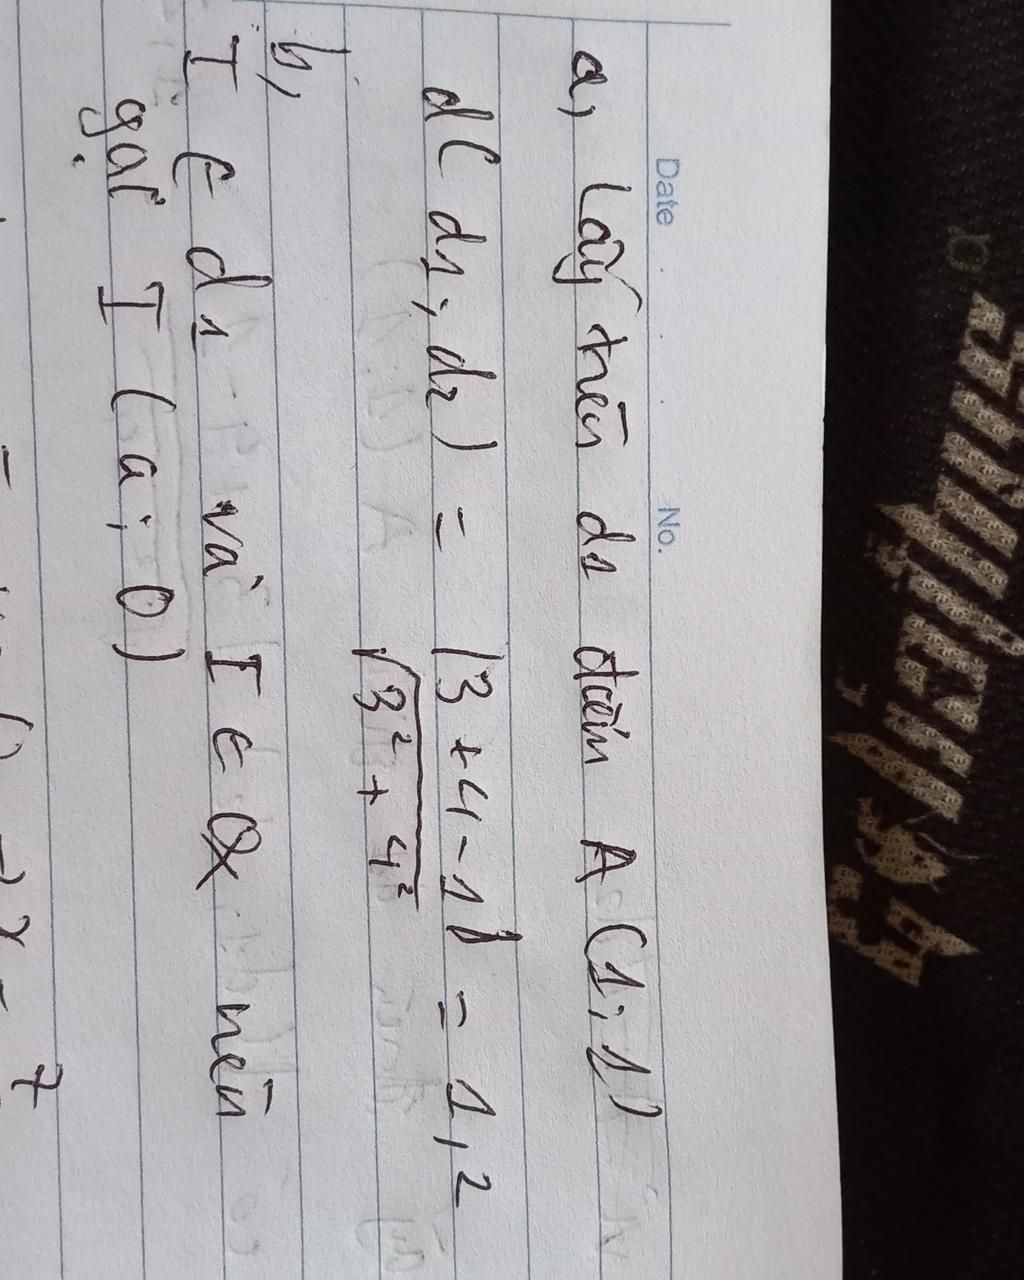 Date No.
a, Lấy trên d1 điểm A (1; 1)
d( d1; d2) = |3 + 4 - 1| / √3² + 4² = 1,2
b,
I ∈ d1 và I ∈ Ox nên
gọi I (a; 0)